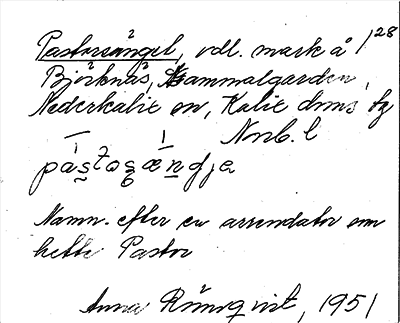 Pastorsängel, odl. mark å 1/28
Björknäs, Gammalgården,
Nederkalix sn, Kalix dms, fg
Nrrb. l
pàstosæn djə
Namn. efter en arrendator som
hette Pastor
Anna Rönnqvist, 1951